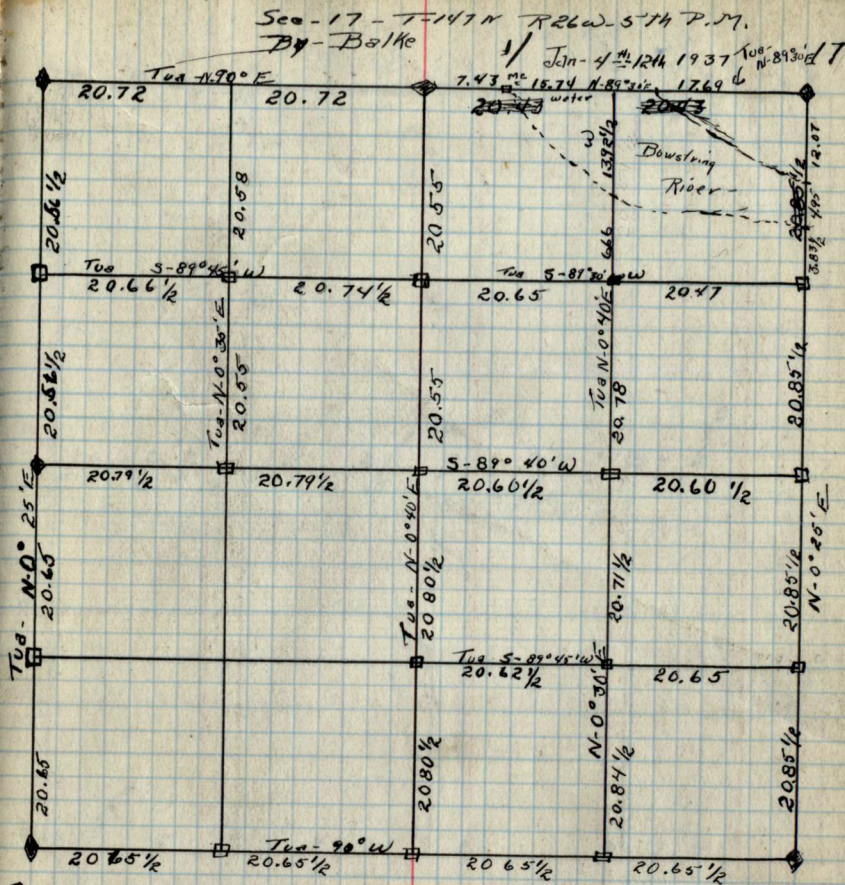 Sec-17-T-147N R26W-5th P.M.
By-Balke
Jan-4th-12th 1937
17
Tua N.90°E
Tua-N-89°30'E
20.72
20.72
7.43
MC
15.74
N-89°30'E
17.69
20.43
water
20.43
Bowstring
River
20.58
20.55
W
13.92 1/2
6.66
20.85 1/2
12.07
4.95
3.83 1/2
Tua S-89°45'W
Tua S-89°30'W
20.66 1/2
20.74 1/2
20.65
20.47
Tua-N-0°35'E
20.55
20.55
Tua N-0°40'E
20.78
20.85 1/2
S-89°40'W
20.79 1/2
20.79 1/2
20.60 1/2
20.60 1/2
Tua-N-0°25'E
20.65
Tua-N-0°40'E
20 80 1/2
20.71 1/2
20.85 1/2
N-0°25'E
Tua S-89°45'W
20.62 1/2
20.65
20.65
20 80 1/2
N-0°30'E
20.84 1/2
20.85 1/2
Tua-90°W
20 65 1/2
20.65 1/2
20 65 1/2
20.65 1/2